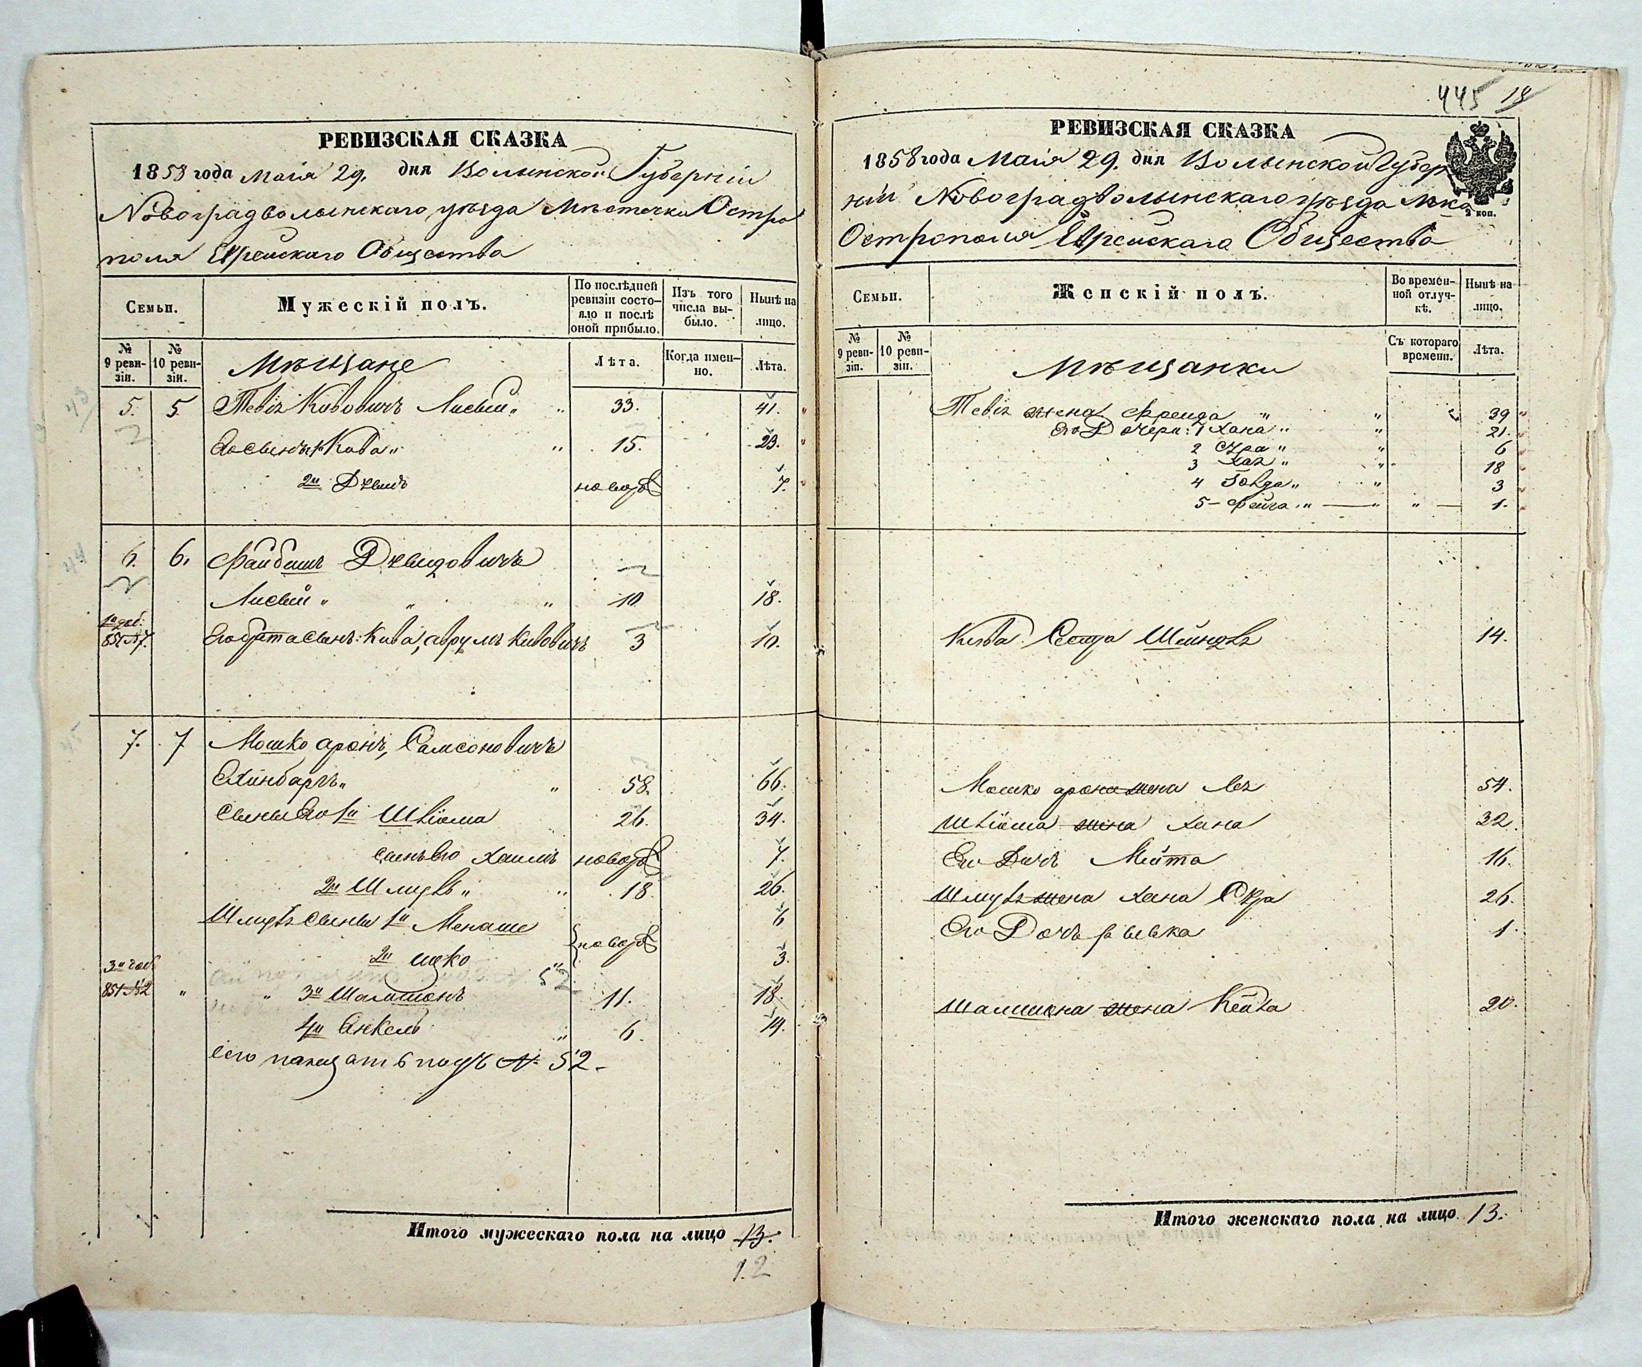 РЕВИЗСКАЯ СКАЗКА
1858 года Маія 29. дня Волынской Губерніи
Новоградволынскаго уѣзда Мѣстечка Остро
поля Еврейскаго Общества
Семьи.
Мужескій полъ.
По послѣдней ревизіи состояло и послѣ оной прибыло.
Изъ того числа выбыло.
Нынѣ на лицо.
№ 9 ревизіи.
№ 10 ревизіи.
Мѣщане
Лѣта.
Когда именно.
Лѣта.
5. 5. Тевіе Кивовичъ 33. 41.
Кива 15. 23.
2й новор 7.
6. 6. Файбишъ
10 18.
857 №7. Кива, аврумъ Кивовичъ 3 10.
7. 7 Мошко аронъ, Самсоновичъ
58. 66.
Сыны Его 1й Шліома 26. 34.
сынъ Его Хаимъ новор 7.
2й Шмуль 18. 26.
Шмуля сыны 1й Менаше 6
новор
2й ицко 3.
851 №52 " " 3й Шамшонъ 11. 18.
4й Янкель 6. 14.
его показать подъ № 52.
Итого мужескаго пола на лицо 13.
12
445 18
РЕВИЗСКАЯ СКАЗКА
1858 года Маія 29. дня Волынской Губер
ніи Новоградволынскаго уѣзда М-ка
2 коп.
Острополя Еврейскаго Общества
Семьи.
Женскій полъ.
Во временной отлучкѣ.
Нынѣ на лицо.
№ 9 ревизіи.
№ 10 ревизіи.
Мѣщанки
Съ котораго времени.
Лѣта.
Тевіе жена Фрейда " " 39
Его Дочери: 1 Хана " " 21.
2 Сура " " 6
3 Хая " " 18
4 Голда " " 3
5 – Фейга " — " " — 1.
Кива Сестра Шейндля 14.
Мошко арона жена Лея 54.
Шліома жена Хана 32.
Его Дочъ Мейта 16.
Шмуля жена Хана Сура 26.
Его Дочъ ривка 1.
Шамшона жена Кейла 20.
Итого женскаго пола на лицо 13.